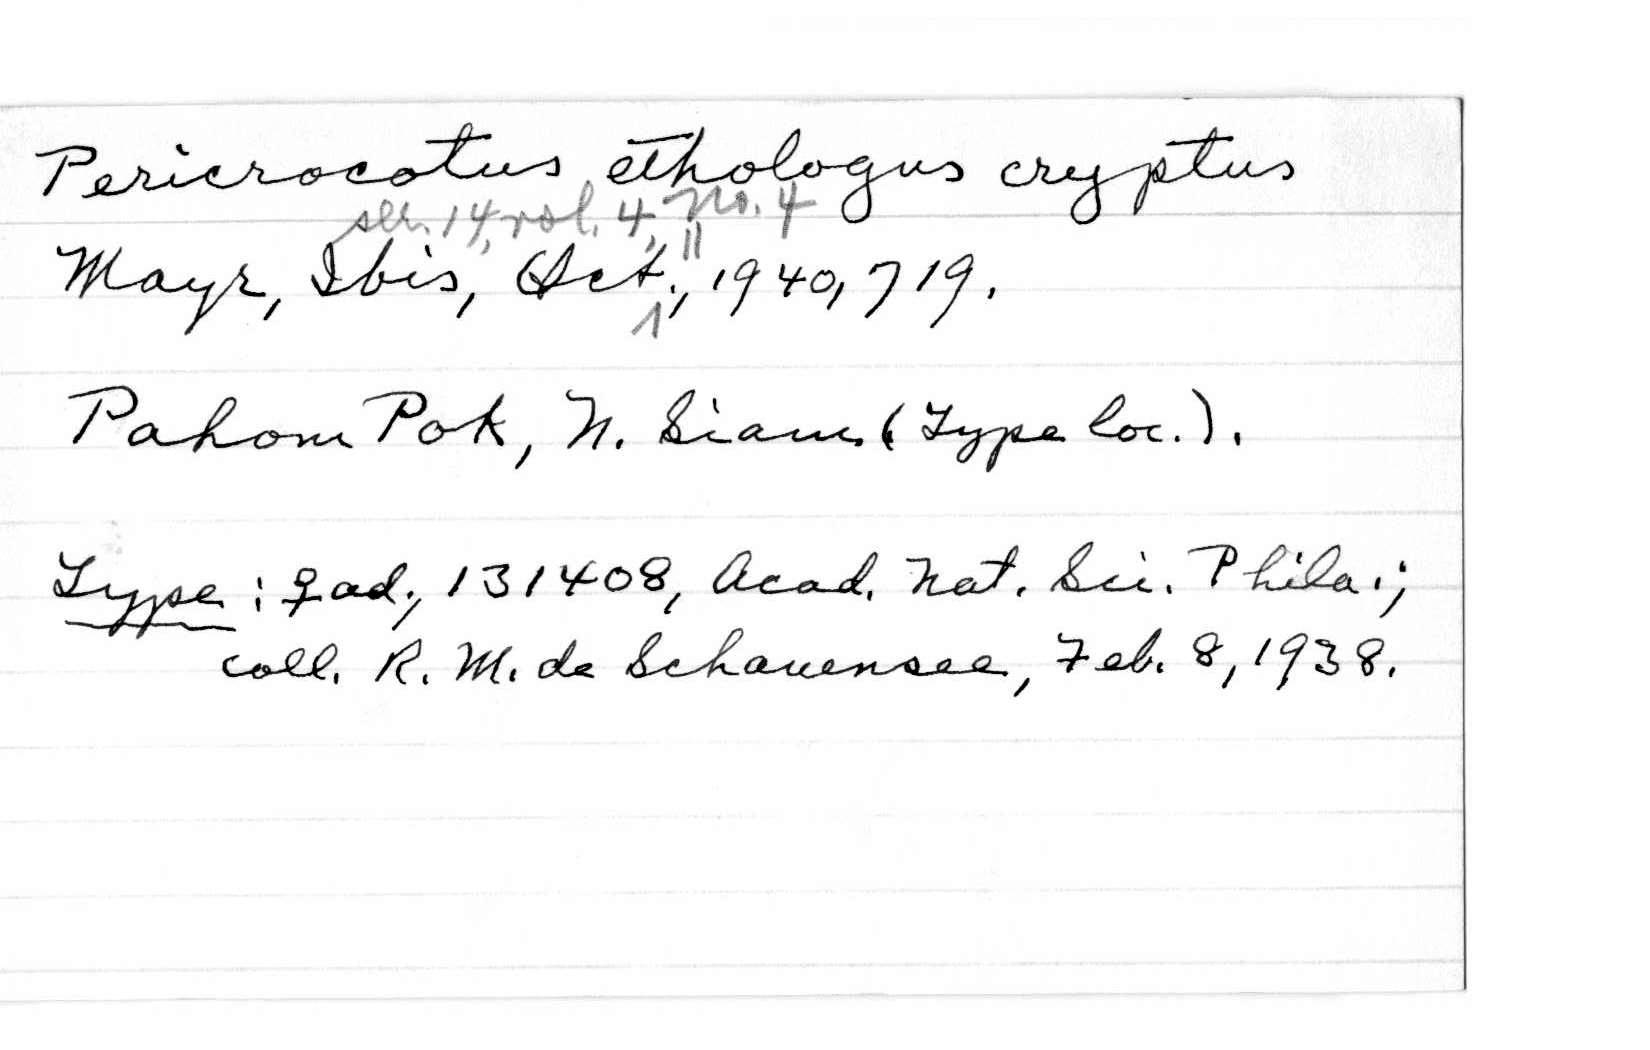 Pericrocotus ethologus cryptus
ser. 14, vol. 4, No. 4
Mayr, Ibis, Oct. 11, 1940, 719.
Pahom Pok, N. Siam (Type loc.).
Type: ♀ ad., 131408, Acad. Nat. Sci. Phila.;
coll. R. M. de Schauensee, Feb. 8, 1938.